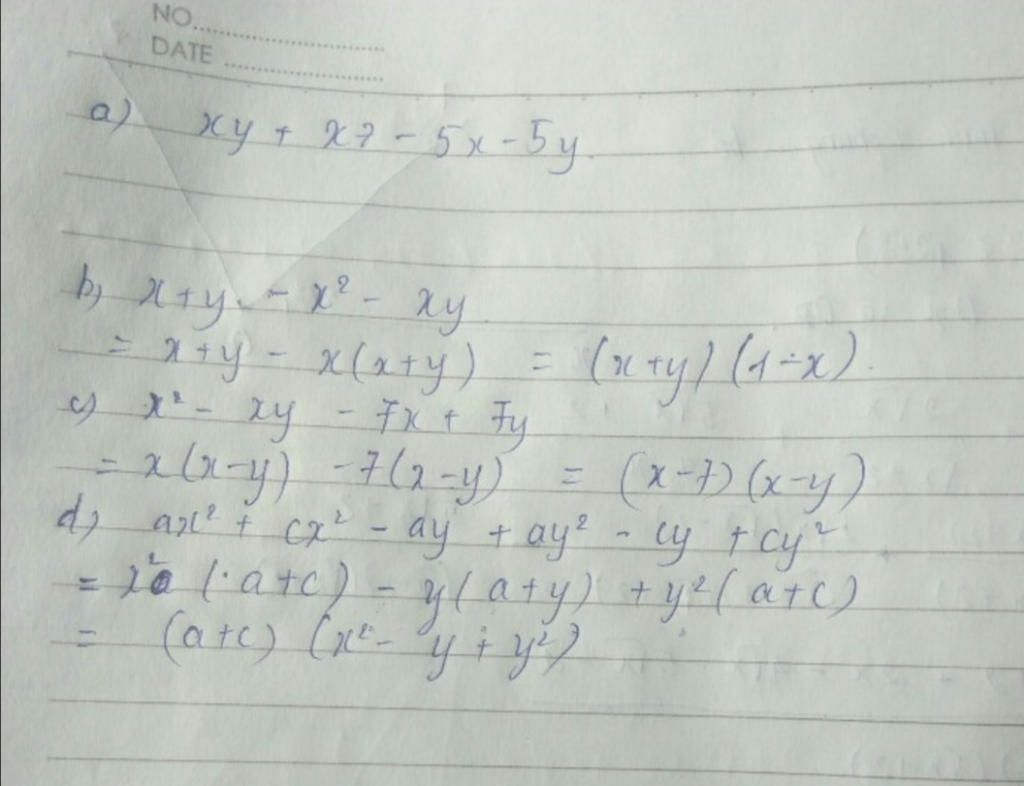 NO.
DATE
a) xy + x7 - 5x - 5y.
b) x + y - x² - xy
= x + y - x(x+y) = (x+y)(1-x).
c) x² - xy - 7x + 7y
= x(x-y) - 7(x-y) = (x-7)(x-y)
d) ax² + cx² - ay + ay² - cy + cy²
= x² (a+c) - y(a+y) + y²(a+c)
= (a+c) (x² - y + y²)